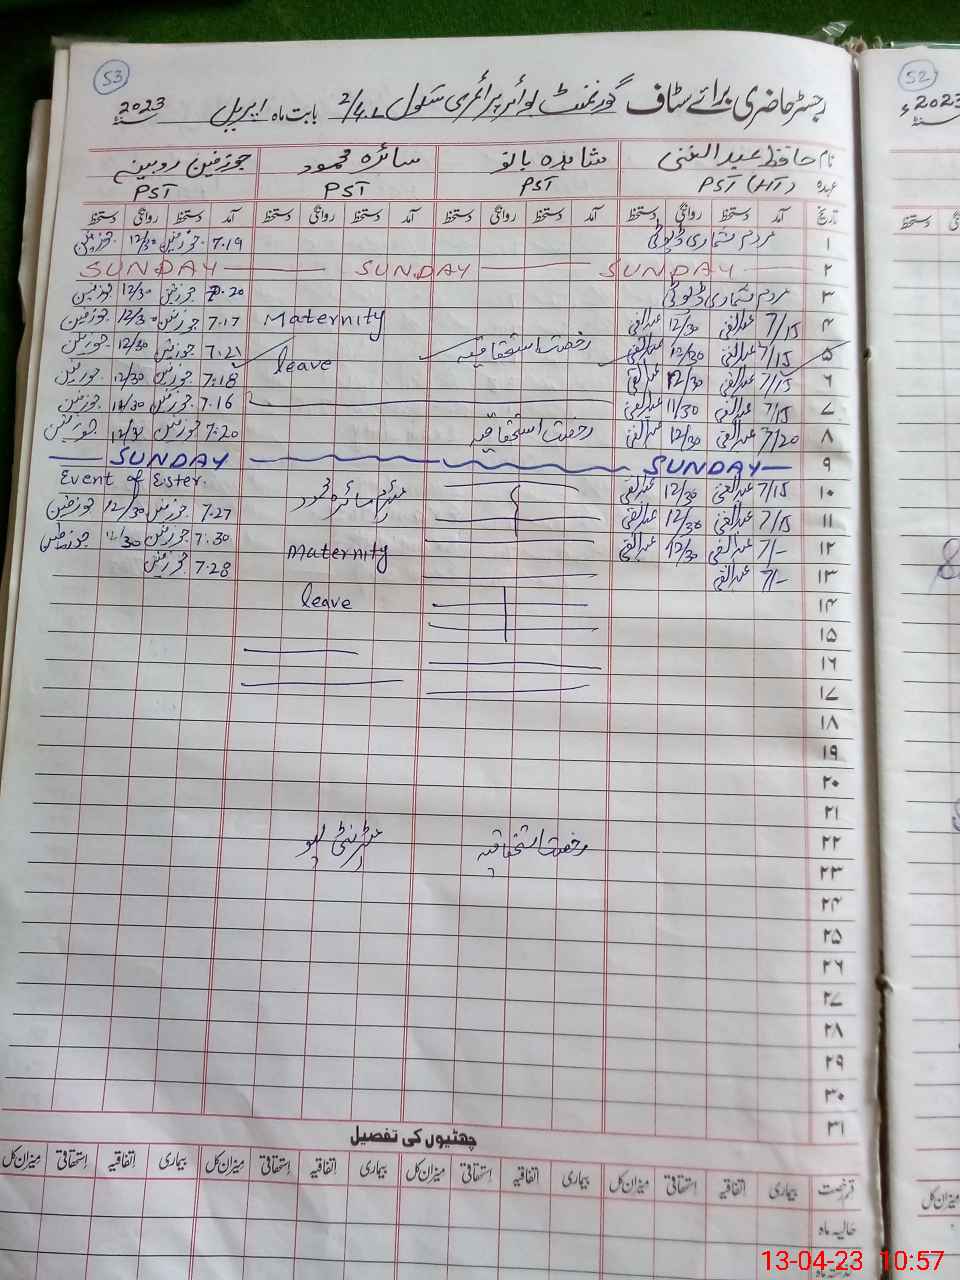 53
رجسٹر حاضری برائے سٹاف گورنمنٹ بوائز پرائمری سکول 2/4.L بابت ماہ اپریل 2023
نام حافظ عبدالغنی شاہدہ بانو سائرہ محمود جوزفین روبینہ
عہدہ PST (HT) PST PST PST
تاریخ آمد دستخط روانگی دستخط آمد دستخط روانگی دستخط آمد دستخط روانگی دستخط آمد دستخط روانگی دستخط
۱ مردم شماری ڈیوٹی 7.19 جوزفین 12/30 جوزفین
۲ SUNDAY SUNDAY SUNDAY
۳ مردم شماری ڈیوٹی 7.20 جوزفین 12/30 جوزفین
۴ 7/15 عبدالغنی 12/30 عبدالغنی Maternity 7.17 جوزفین 12/30 جوزفین
۵ 7/15 عبدالغنی 12/30 عبدالغنی رخصت استحقاقیہ leave 7.21 جوزفین 12/30 جوزفین
۶ 7/15 عبدالغنی 12/30 عبدالغنی 7.18 جوزفین 12/30 جوزفین
۷ 7/15 عبدالغنی 11/30 عبدالغنی 7.16 جوزفین 11/30 جوزفین
۸ 7/20 عبدالغنی 12/30 عبدالغنی رخصت استحقاقیہ 7.20 جوزفین جوزفین
۹ SUNDAY SUNDAY
۱۰ 7/15 عبدالغنی 12/30 عبدالغنی سائرہ محمود Event of Ester.
۱۱ 7/15 عبدالغنی 12/30 عبدالغنی 7.27 جوزفین 12/30 جوزفین
۱۲ 7/- عبدالغنی 12/30 عبدالغنی Maternity 7.30 جوزفین 12/30 جوزفین
۱۳ 7/- عبدالغنی 7.28 جوزفین
۱۴ leave
۱۵
۱۶
۱۷
۱۸
۱۹
۲۰
۲۱
۲۲ رخصت استحقاقیہ میٹرنٹی لیو
۲۳
۲۴
۲۵
۲۶
۲۷
۲۸
۲۹
۳۰
۳۱
چھٹیوں کی تفصیل
قسم رخصت بیماری اتفاقیہ استحقاقی میزان کل بیماری اتفاقیہ استحقاقی میزان کل بیماری اتفاقیہ استحقاقی میزان کل بیماری اتفاقیہ استحقاقی میزان کل
حالیہ ماہ
گذشتہ ماہ
52
2023ء
دستخط
میزان کل
13-04-23 10:57